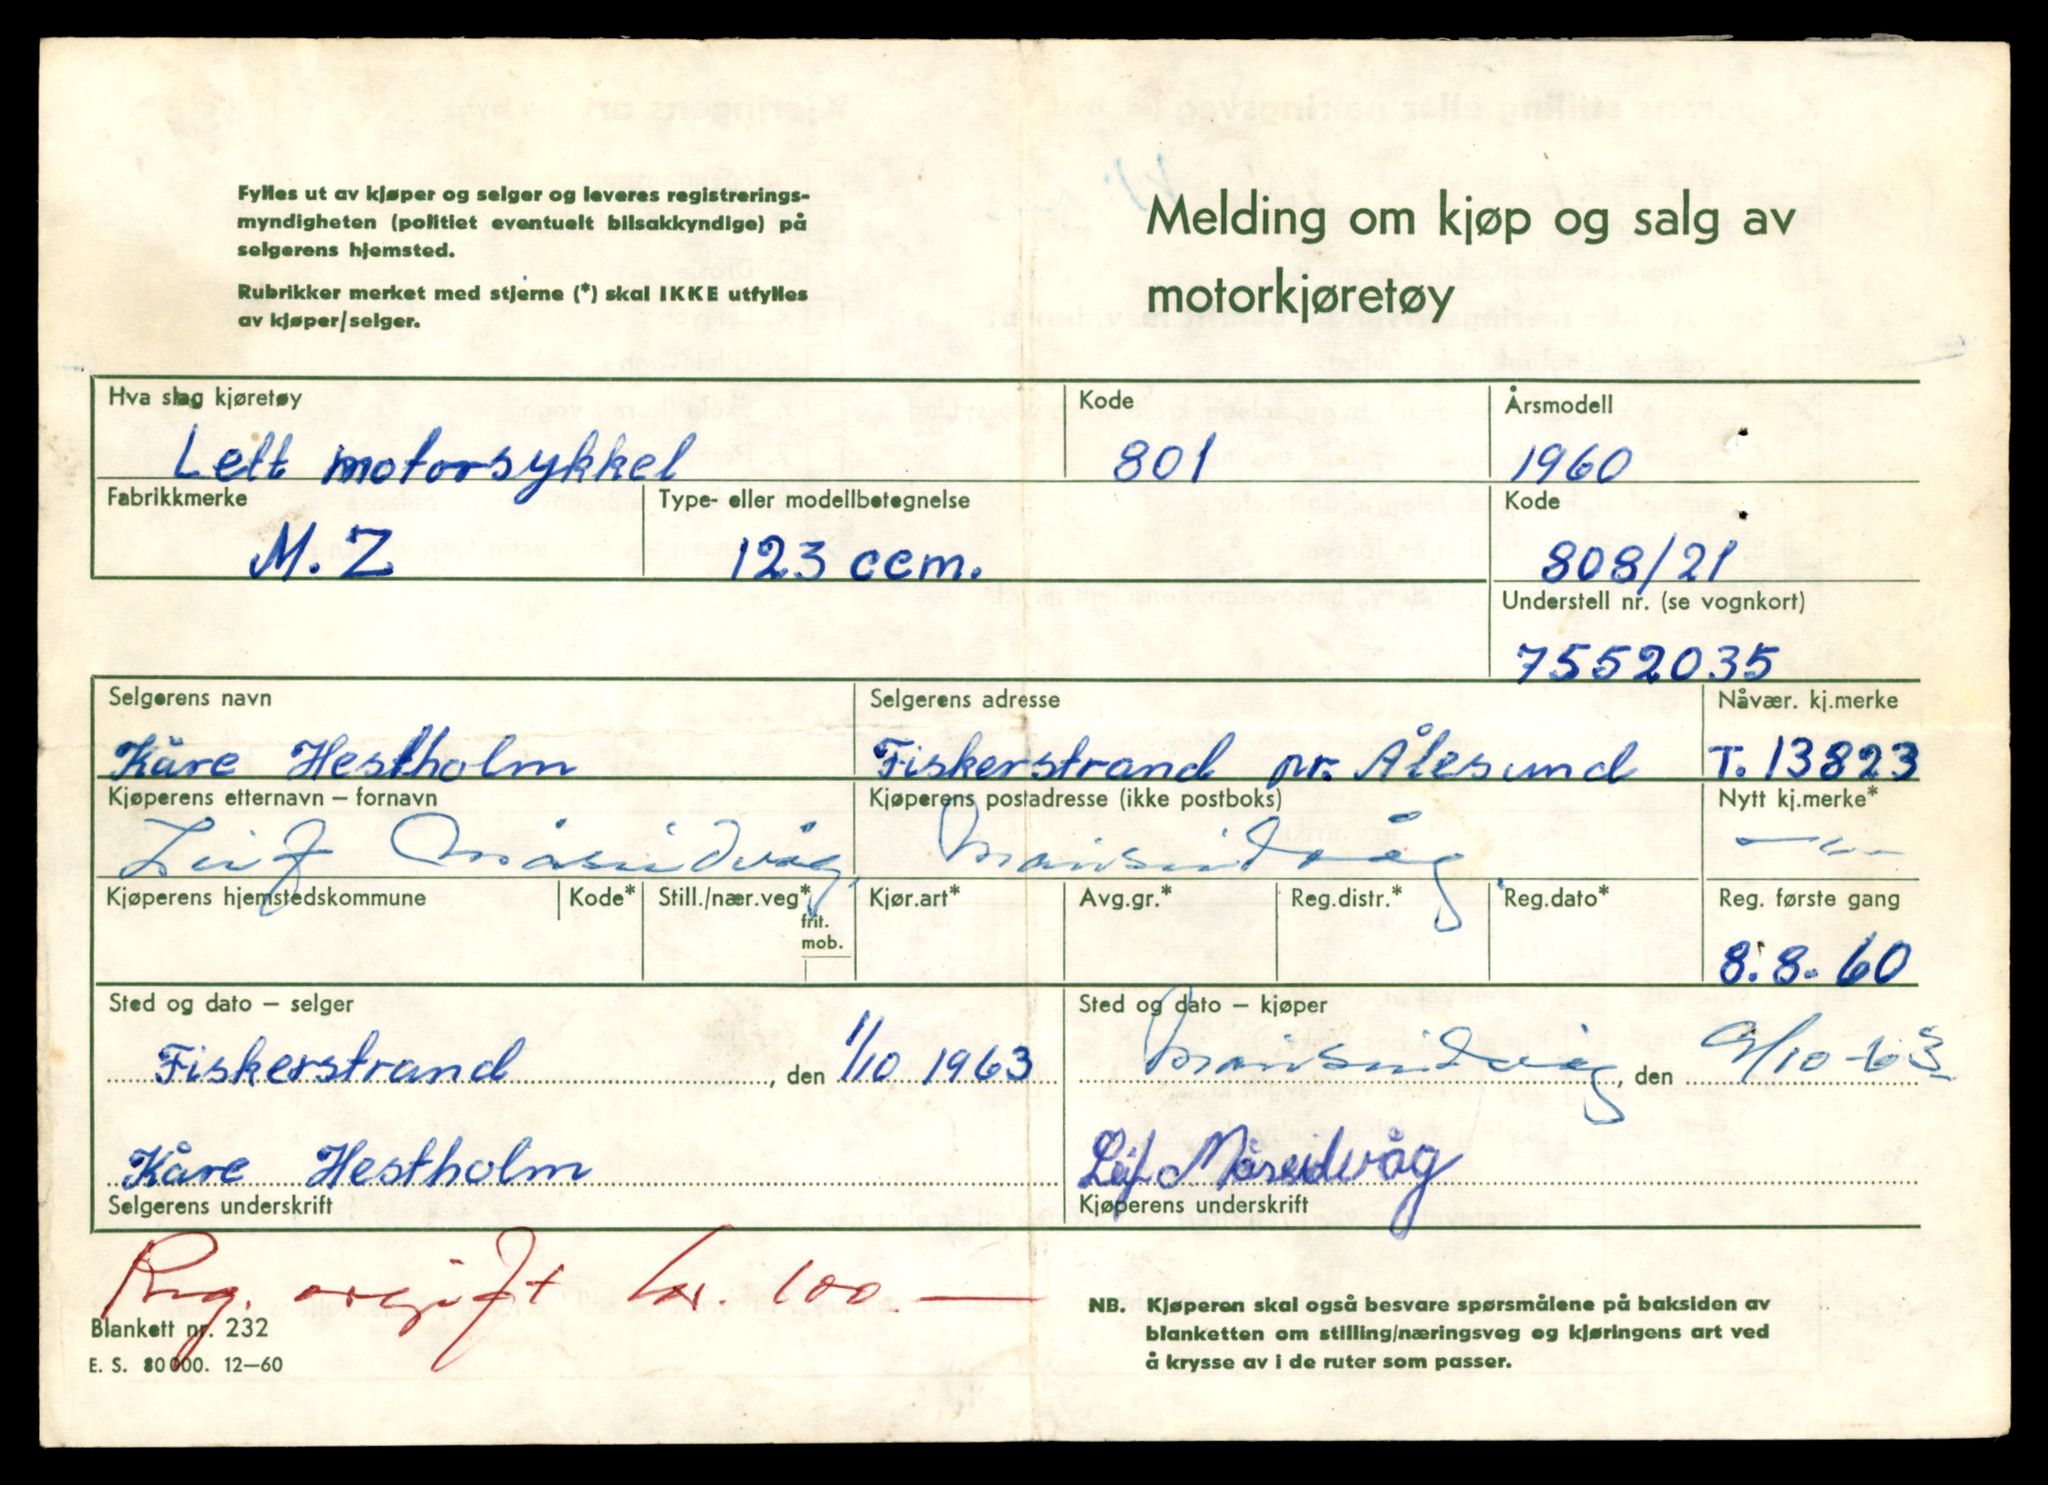 Fylles ut av kjøper og selger og leveres registrerings-
myndigheten (politiet eventuelt bilsakkyndige) på
selgerens hjemsted.
Rubrikker merket med stjerne (*) skal IKKE utfylles
av kjøper/selger.
Melding om kjøp og salg av
motorkjøretøy
Hva slag kjøretøy Kode Årsmodell
Lett motorsykkel 801 1960
Fabrikkmerke Type- eller modellbetegnelse Kode
M.Z 123 ccm. 808/21
Understell nr. (se vognkort)
7552035
Selgerens navn Selgerens adresse Nåvær. kj.merke
Kåre Hestholm Fiskerstrand pr. Ålesund T. 13823
Kjøperens etternavn – fornavn Kjøperens postadresse (ikke postboks) Nytt kj.merke*
Leif Måseidvåg Mauseidvåg — " —
Kjøperens hjemstedskommune Kode* Still./nær.veg* Kjør.art* Avg.gr.* Reg.distr.* Reg.dato* Reg. første gang
frit.
mob.
8.8.60
Sted og dato – selger Sted og dato – kjøper
Fiskerstrand, den 1/10 1963 Mauseidvåg, den 9/10-63
Kåre Hestholm Leif Måseidvåg
Selgerens underskrift Kjøperens underskrift
Reg. avgift kr. 100.—
Blankett nr. 232
E. S. 80000. 12–60
NB. Kjøperen skal også besvare spørsmålene på baksiden av
blanketten om stilling/næringsveg og kjøringens art ved
å krysse av i de ruter som passer.